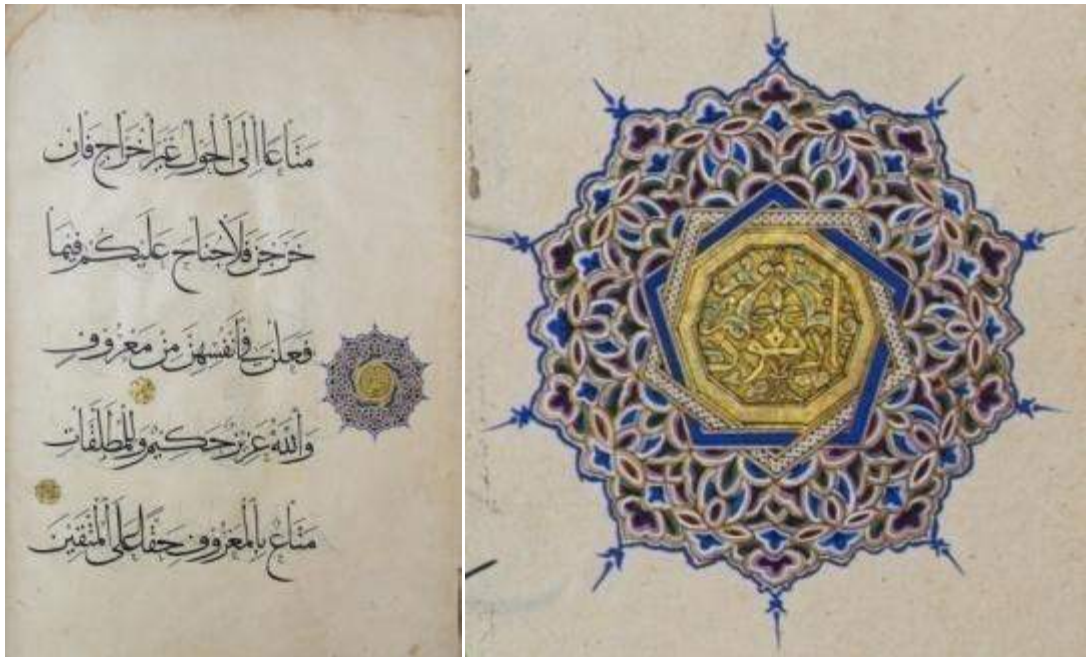 مَتَاعًا إِلَى الْحَوْلِ غَيْرَ إِخْرَاجٍ فَإِنْ
خَرَجْنَ فَلَا جُنَاحَ عَلَيْكُمْ فِيمَا
فَعَلْنَ فِي أَنْفُسِهِنَّ مِنْ مَعْرُوفٍ
وَاللَّهُ عَزِيزٌ حَكِيمٌ وَلِلْمُطَلَّقَاتِ
مَتَاعٌ بِالْمَعْرُوفِ حَقًّا عَلَى الْمُتَّقِينَ